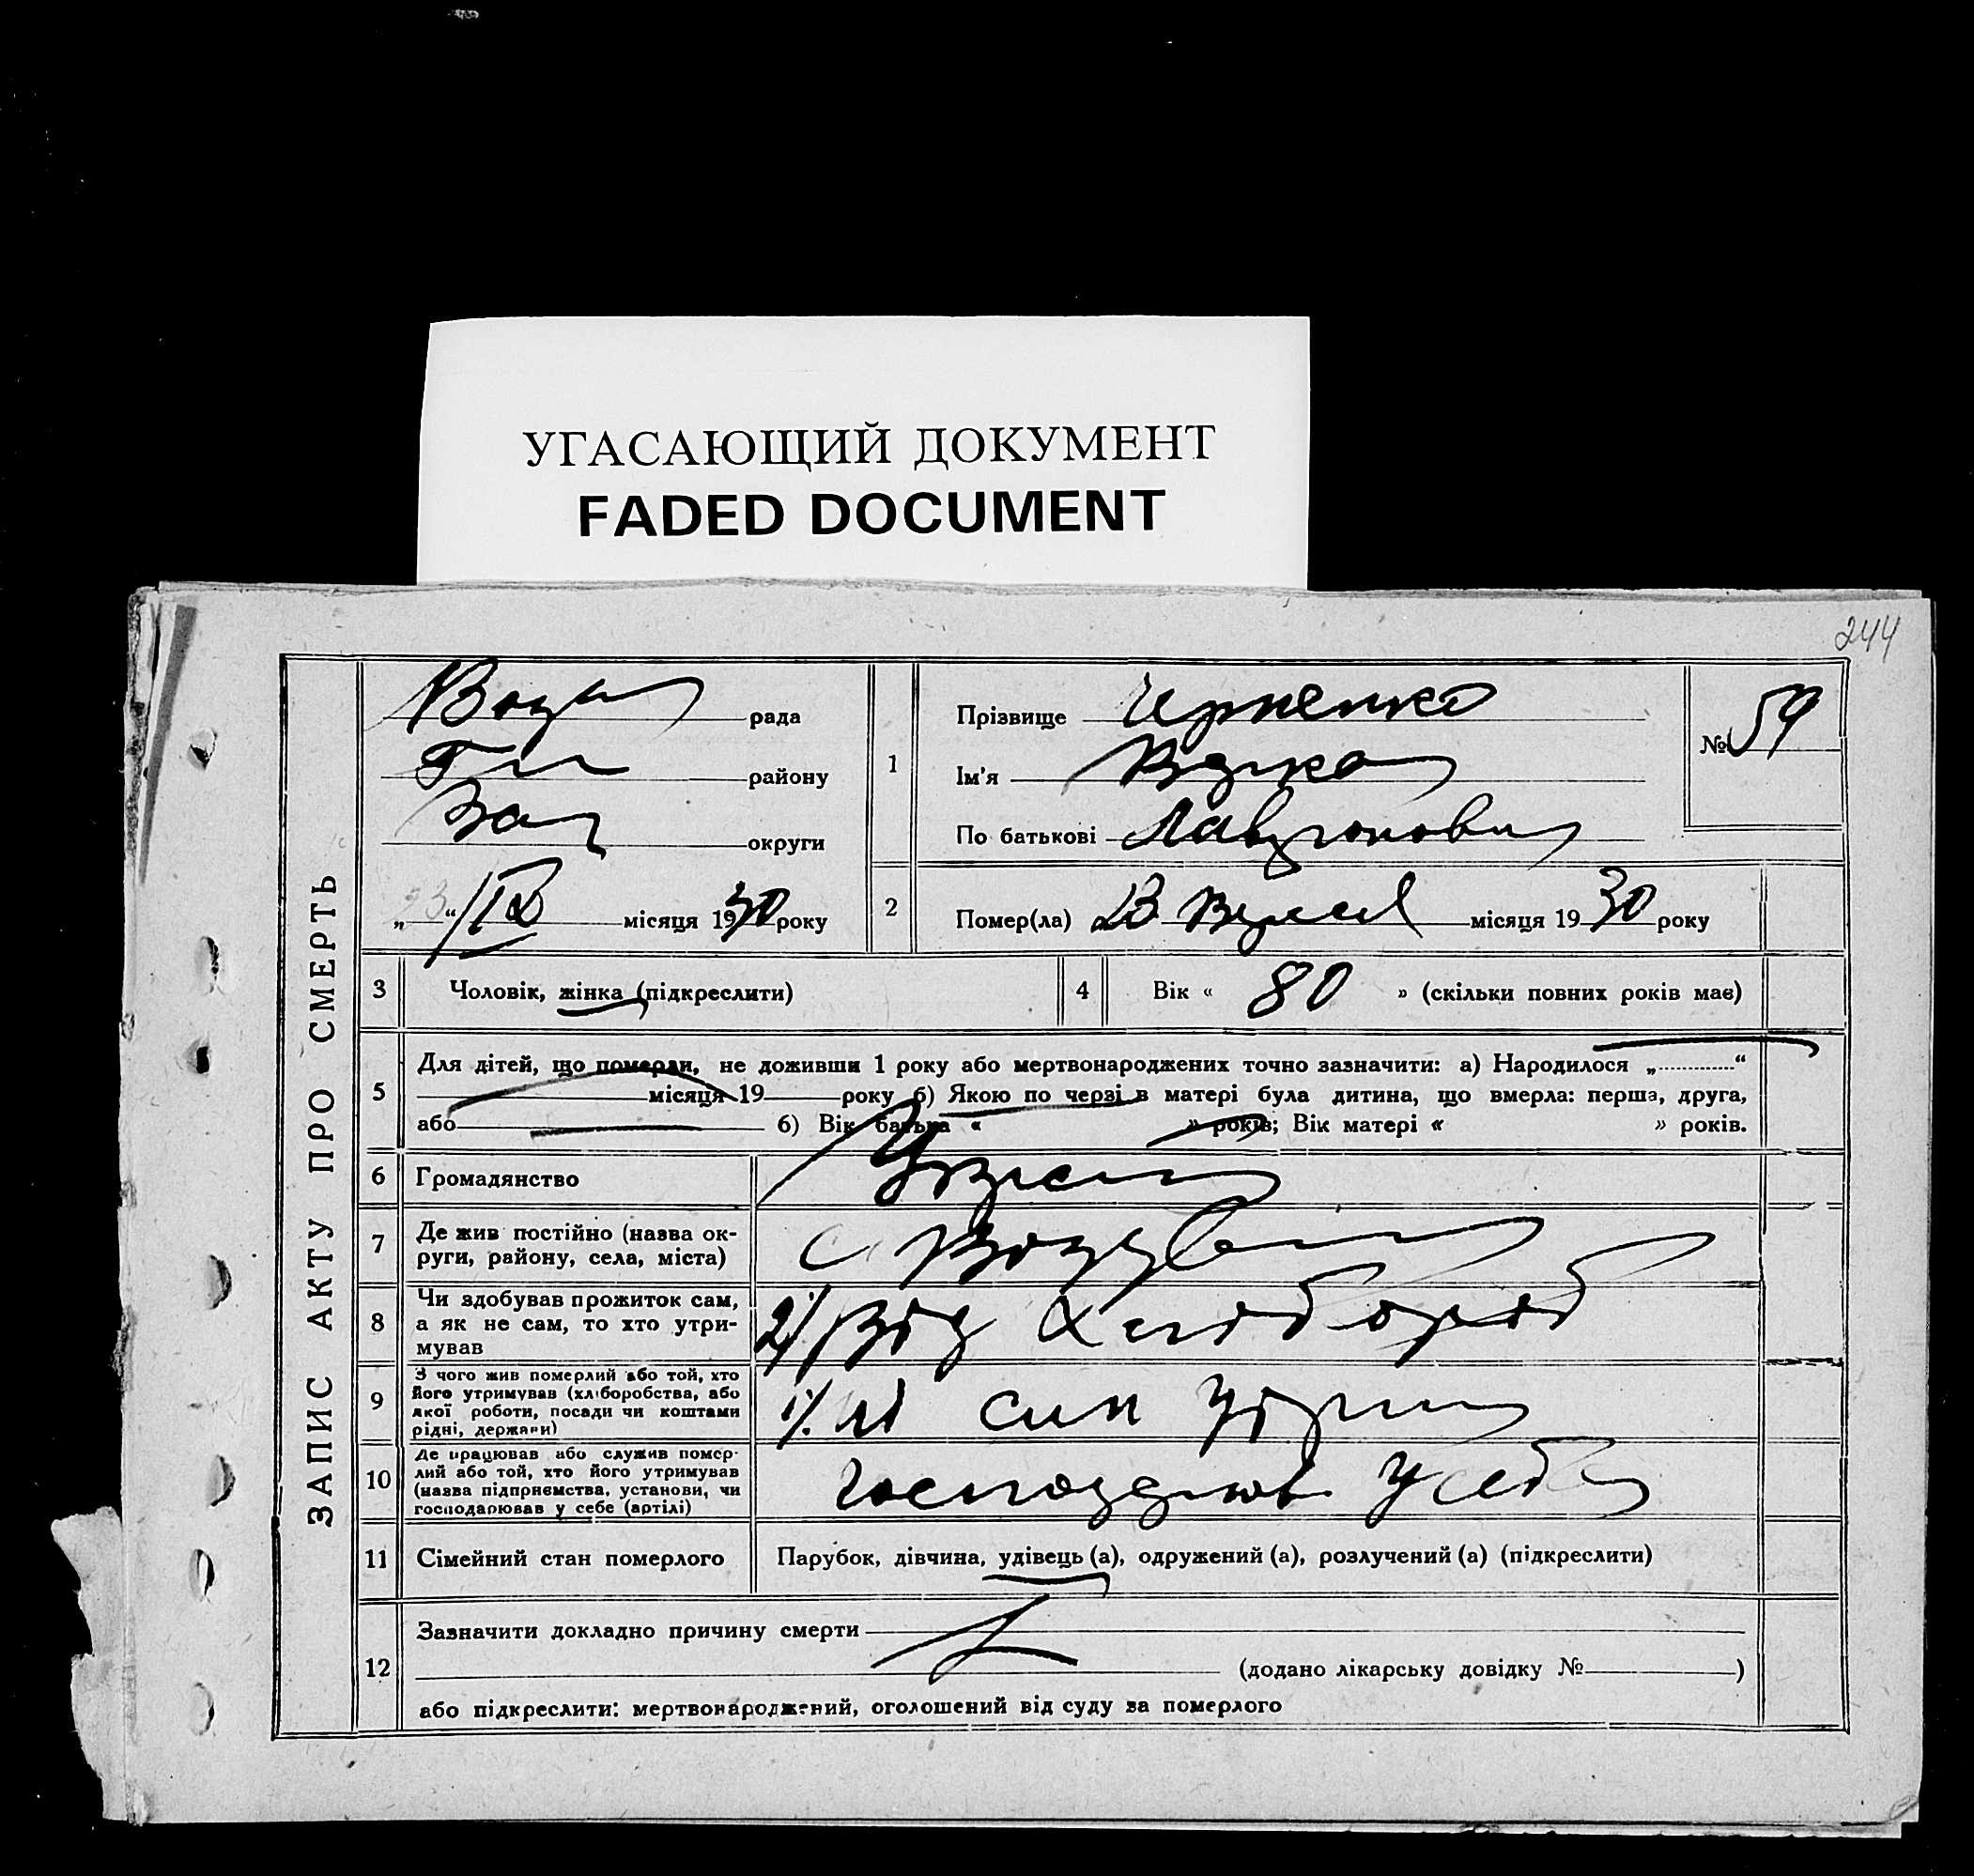 УГАСАЮЩИЙ ДОКУМЕНТ
FADED DOCUMENT
244
ЗАПИС АКТУ ПРО СМЕРТЬ
рада
району
округи
„ “/IX місяця 1930 року
1
Прізвище Черненко
Ім'я
По батькові
№ 59
2
Помер(ла) 23 місяця 1930 року
3
Чоловік, жінка (підкреслити)
4
Вік « 80 » (скільки повних років має)
5
Для дітей, що померли, не доживши 1 року або мертвонароджених точно зазначити: а) Народилося „ “
місяця 19 року б) Якою по черзі в матері була дитина, що вмерла: перша, друга,
або б) Вік батька « » років; Вік матері « » років.
6
Громадянство
7
Де жив постійно (назва ок-
руги, району, села, міста)
с.
8
Чи здобував прожиток сам,
а як не сам, то хто утри-
мував
2/ Від хлібороб
9
З чого жив померлий або той, хто
його утримував (хліборобства, або
якої роботи, посади чи коштами
рідні, держави)
1/. ні син
10
Де працював або служив помер-
лий або той, хто його утримував
(назва підприємства, установи, чи
господарював у себе (артілі)
у себе
11
Сімейний стан померлого
Парубок, дівчина, удівець (а), одружений (а), розлучений (а) (підкреслити)
12
Зазначити докладно причину смерти
(додано лікарську довідку № )
або підкреслити: мертвонароджений, оголошений від суду за померлого